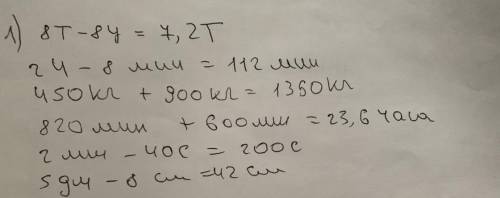 1) 8т - 8ц = 7,2т
2ч - 8 мин = 112 мин
450кг + 900кг = 1350кг
820мин + 600мин = 23,6 часа
2 мин - 40с = 200с
5дм - 8 см = 42 см